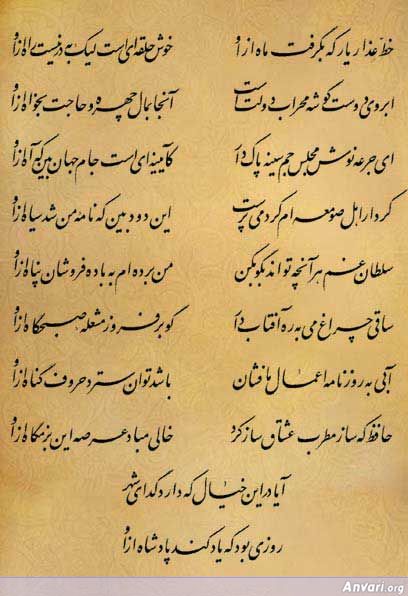 خط عذار یار که بگرفت ماه ازو خوش حلقه‌ای است لیک به در نیست راه ازو
ابروی دوست گوشه محراب دولت است آنجا بمال چهره و حاجت بخواه ازو
ای جرعه نوش مجلس جم سینه پاک دار کآیینه‌ای است جام جهان بین که آه ازو
کردار اهل صومعه‌ام کرد می پرست این دود بین که نامه من شد سیاه ازو
سلطان غم هر آنچه تواند بگو بکن من برده‌ام به باده فروشان پناه ازو
ساقی چراغ می به ره آفتاب دار گو برفروز مشعله صبحگاه ازو
آبی به روزنامه اعمال ما فشان باشد توان سترد حروف گناه ازو
حافظ که ساز مطرب عشاق ساز کرد خالی مباد عرصه این بزمگاه ازو
آیا در این خیال که دارد گدای شهر
روزی بود که یاد کند پادشاه ازو
Anvari.org